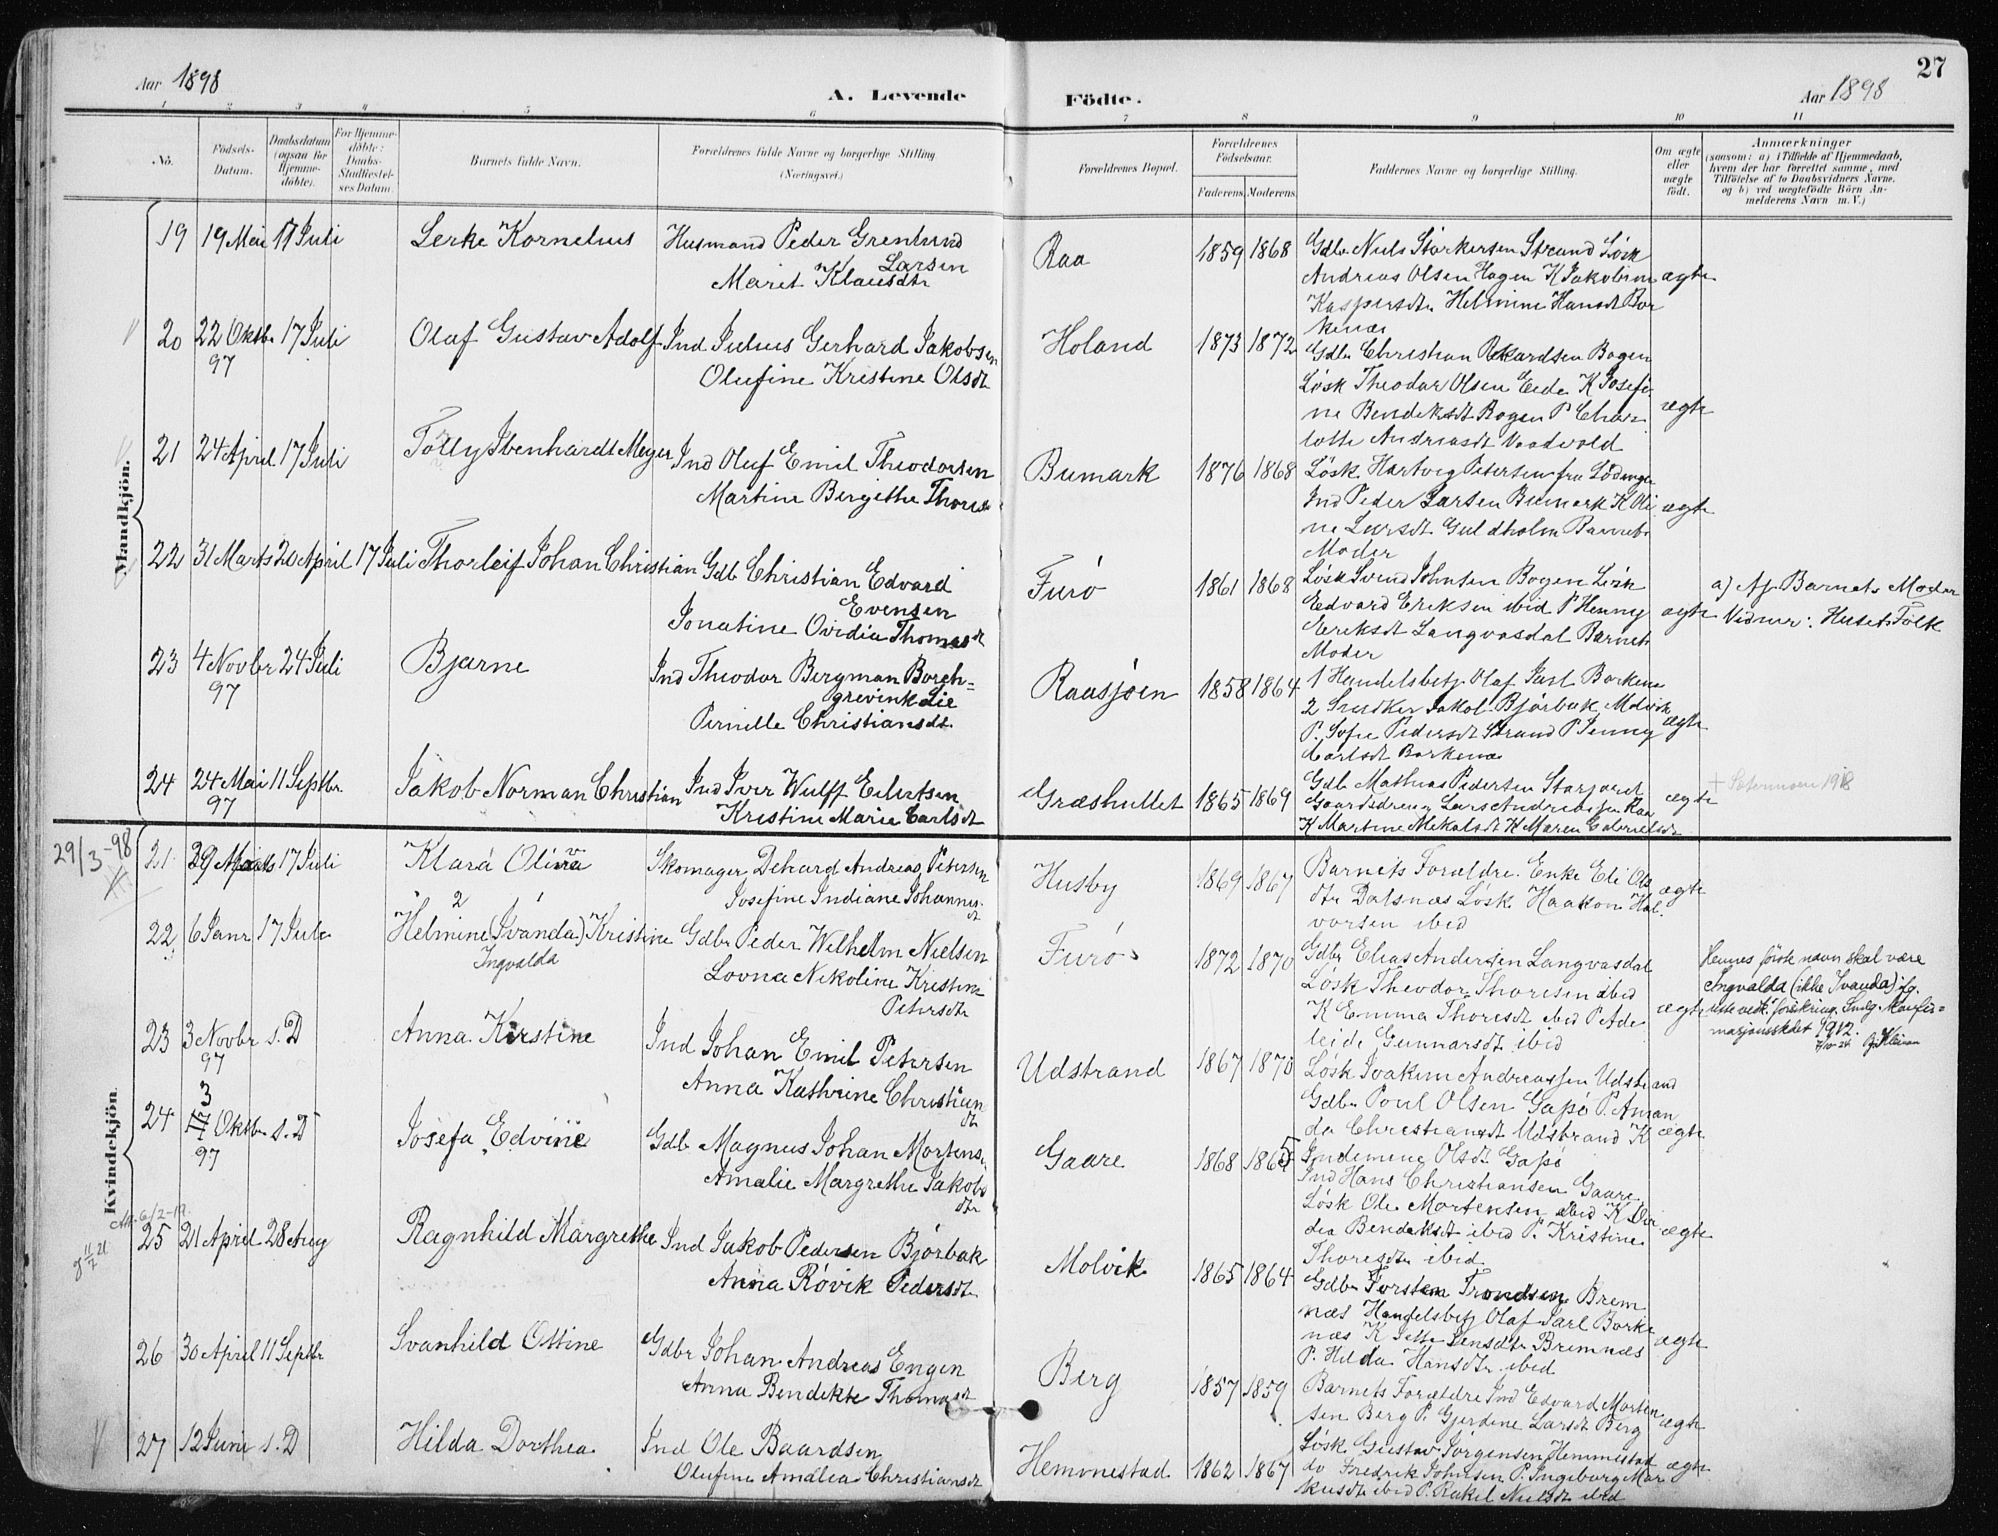 Aar 1898
A. Levende
Födte.
Aar 1898
27
1 2 3 4 5 6 7 8 9 10 11
No.
Födsels-
Datum.
Daabsdatum
(ogsaa for
Hjemme-
döbte).
For Hjemme-
döbte:
Daabs-
Stadfæstel-
ses Datum.
Barnets fulde Navn.
Forældrenes fulde Navne og borgerlige Stilling
(Næringsvei.)
Forældrenes Bopæl.
Forældrenes
Födselsaar.
Faderens. Moderens.
Faddernes Navne og borgerlige Stilling.
Om ægte
eller
uægte
födt.
Anmærkninger
(saasom: a) i Tilfælde af Hjemmedaab,
hvem der har forrettet samme, med
Tilföielse af to Daabsvidners Navne,
og b) ved uægtefödte Börn An-
melderens Navn m. V.)
Mandkjön.
19 19 Mai 17 Juli Lerke Kornelius Husmand Peder Grenlund
Larsen
Marit Klausdtr
Raa 1859 1868 Gdbr Niels Størkersen Strand Løsk
Andreas Olsen Hagen K Jakobine
Kaspersdtr Helmine Hansdt Bor
kenæs
ægte
20 22 Oktbr 17 Juli Olaf Gustav Adolf Ind Julius Gerhard Jakobsen
97 Olufine Kristine Olsdt
Holand 1873 1872 Gdbr Christian Rikardsen Bogen
Løsk Theodor Olsen Eide K Josefi
ne Bendiksdt Bogen P Char
lotte Andreasdt Vaadvold
ægte
21 24 April 17 Juli Tolly Ibenhardt Meyer Ind Oluf Emil Theodorsen
Martine Bergithe Thores
Bumark 1876 1868 Løsk Hartvig Petersen fra Lödingen
Ind Peder Larsen Bumark K Oli
ne Larsdt Guldholm Barnets
Moder
ægte
22 31 Marts 20 April 17 Juli Thorleif Johan Christian Gdb Christian Edvard
Evensen
Jonatine Ovidia Thomasdt
Furö 1861 1868 Løsk Svend Johnsen Bogen Løsk
Edvard Eriksen ibid P Henny
Eriksdt Langvasdal Barnets
Moder
ægte
a) Af Barnets Moder
Vidner: Husets Folk
23 4 Novbr 24 Juli Bjarne Ind Theodor Bergman Borch=
97 grevink Lie
Pernille Christiansdt.
Raasjøen 1858 1864 1 Handelsbetj Olaf Jarl Borkenæs
2 Snedker Jakob Bjørbak Molvik
P. Sofie Pedersdt Strand P Jenny
Carlsdt Borkenæs
ægte
24 24 Mai 11 Septbr. Jakob Norman Christian Ind Iver Wulff Eilertsen
97 Kristine Marie Carlsdt
Græshullet 1865 1869 Gdb Mathias Pedersen Storjord
Gaardsdreng Lars Andreassen Raa
K Martine Mikalsdt K Maren Gabrielsdt
ægte
Kvindekjön.
29/3-98
21. 29 Marts 17 Juli Klara Oliva Skomager Dehard Andreas Petersen
Josefine Indiane Johannes
dt
Husby 1869 1867 Barnets Forældre. Enke Eli Ols
dtr Dalsnæs Løsk Haakon Hal
vorsen ibid
ægte
22 6 Janr 17 Juli Helmine (Ivanda) Kristine Gdbr Peder Wilhelm Nielsen
Ingvalda Lovna Nikoline Kristine
Petersdtr
Furö 1872 1870 Gdbr Elias Andersen Langvasdal
Løsk Theodor Thoresen ibid
K Emma Thoresdt ibid P Ade
leide Gunnarsdt ibid
ægte
Hennes första navn skal være
Ingvalda (ikke Ivanda) jfr.
Konfir=
masjonsstedet 1912.
23 3 Novbr s. D Anna Kirstine Ind Johan Emil Petersen
97 Anna Kathrine Christian
dtr
Udstrand 1867 1870 Løsk Joakim Andreassen Udstrand
Gdbr Poul Olsen Gapö P. Aman
da Christiansdt Udstrand K
Indemine Olsdt Gapö
ægte
24 3 Oktbr s. D Josefa Edvine Gdb Magnus Johan Mortens.
97 Amalie Margrethe Jakobs
dtr
Gaare 1868 1865 Ind Hans Christiansen Gaare.
Løsk Ole Mortensen ibid K Ovi
dia Bendiksdt ibid P. Kristine
Thoresdtr ibid.
ægte
25 21 April 28 Aug Ragnhild Margrethe Ind Jakob Pedersen Bjørbak
Anna Rövik Pedersdt.
Molvik 1865 1864 Gdbr Torsten Trondsen Brem
næs Handelsbetj Olaf Jarl Borke
næs K Jette Jensdtr Bremnæs
P. Hilda Hansdtr. ibid
ægte
26 30 April 11 Septbr Svanhild Ottine Gdbr Johan Andreas Engen
Anna Bendikte Thomasdt
Berg 1857 1859 Barnets Forældre Ind Edvard Morten
sen Berg P. Gjerdine Larsdt Berg
ægte
27 12 Juni s. D Hilda Dorthea Ind Ole Baardsen
Olufine Amalia Christiansdt
Hemmestad 1862 1867 Løsk Gustav Jørgensen Hemmestad
do Fredrik Johnsen P. Ingeborg Mar
kusdtr ibid P. Rakel Nielsdt ibid
ægte